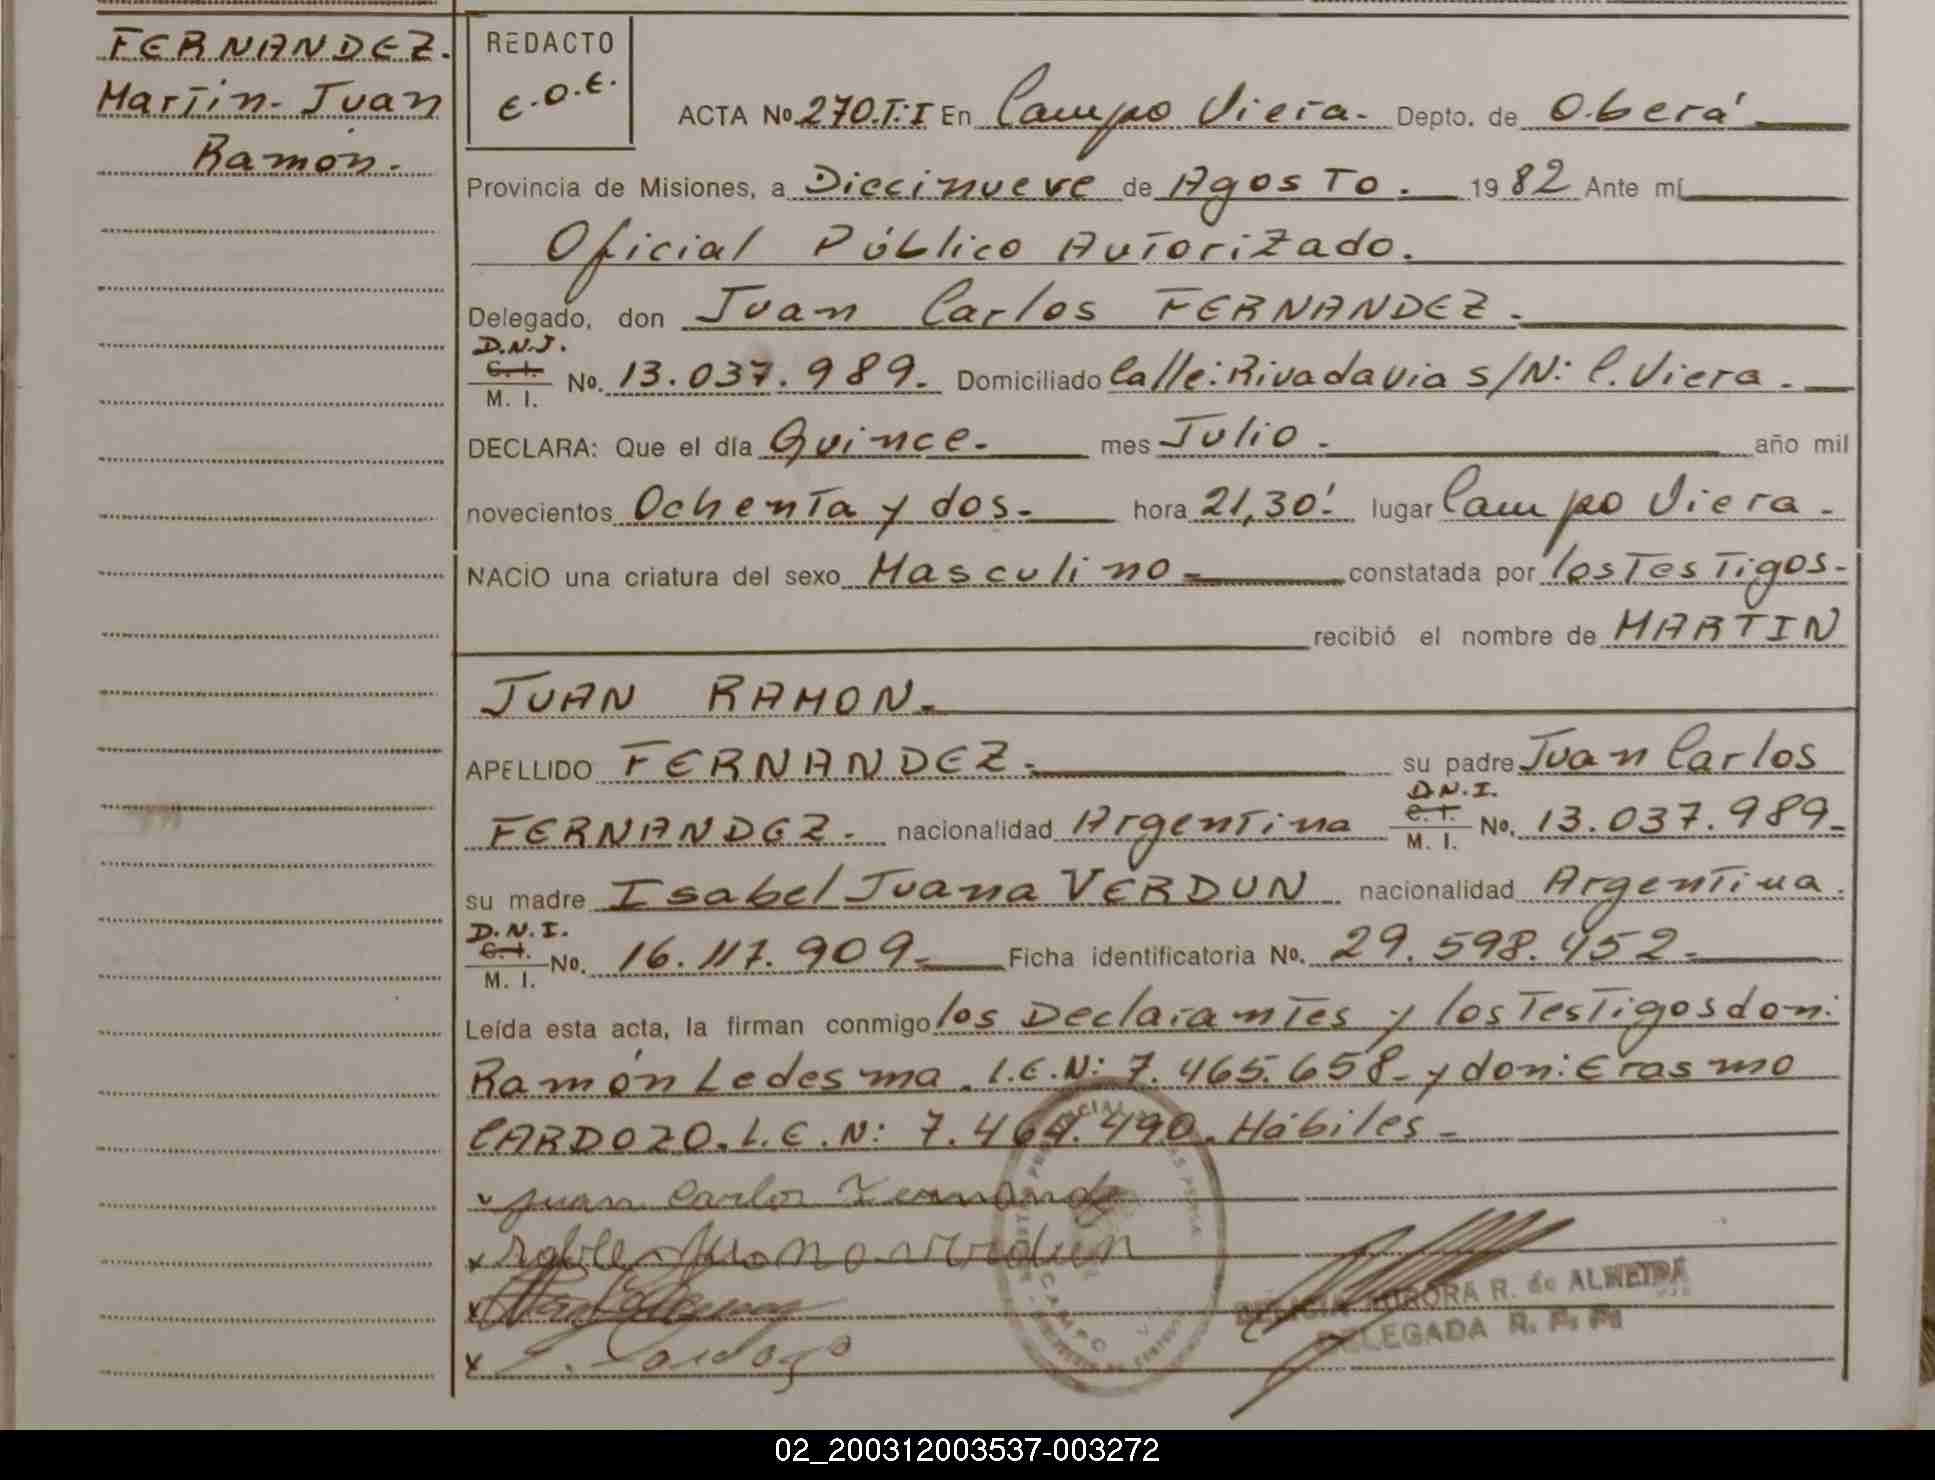 FERNANDEZ.
Martin- Juan
Ramón.
REDACTO
E.O.E.
ACTA No 270.T:I En Campo Viera- Depto. de Oberá
Provincia de Misiones, a Diecinueve de Agosto. 1982 Ante mí
Oficial Público Autorizado.
Delegado, don Juan Carlos FERNANDEZ.
D.N.I.
C. I.
M. I. No. 13.037.989. Domiciliado Calle: Rivadavia s/N: C. Viera.
DECLARA: Que el día Quince. mes Julio. año mil
novecientos Ochenta y dos. hora 21,30' lugar Campo Viera.
NACIO una criatura del sexo Masculino constatada por los Testigos-
recibió el nombre de MARTIN
JUAN RAMON.
APELLIDO FERNANDEZ. su padre Juan Carlos
D.N.I.
FERNANDEZ. nacionalidad Argentina C. I. No. 13.037.989-
M. I.
su madre Isabel Juana VERDUN nacionalidad Argentina.
D.N.I.
C. I.
M. I. No. 16.117.909- Ficha identificatoria No. 29.598.452-
Leída esta acta, la firman conmigo los Declarantes y los Testigos don:
Ramón Ledesma. L.E.N: 7.465.658- y don: Erasmo
CARDOZO. L.E.N: 7.464.490. Hábiles-
Juan Carlos Fernandez
E. Cardozo
CAMPO
AURORA R. de ALMEIDA
DELEGADA R. P. P.
02_200312003537-003272